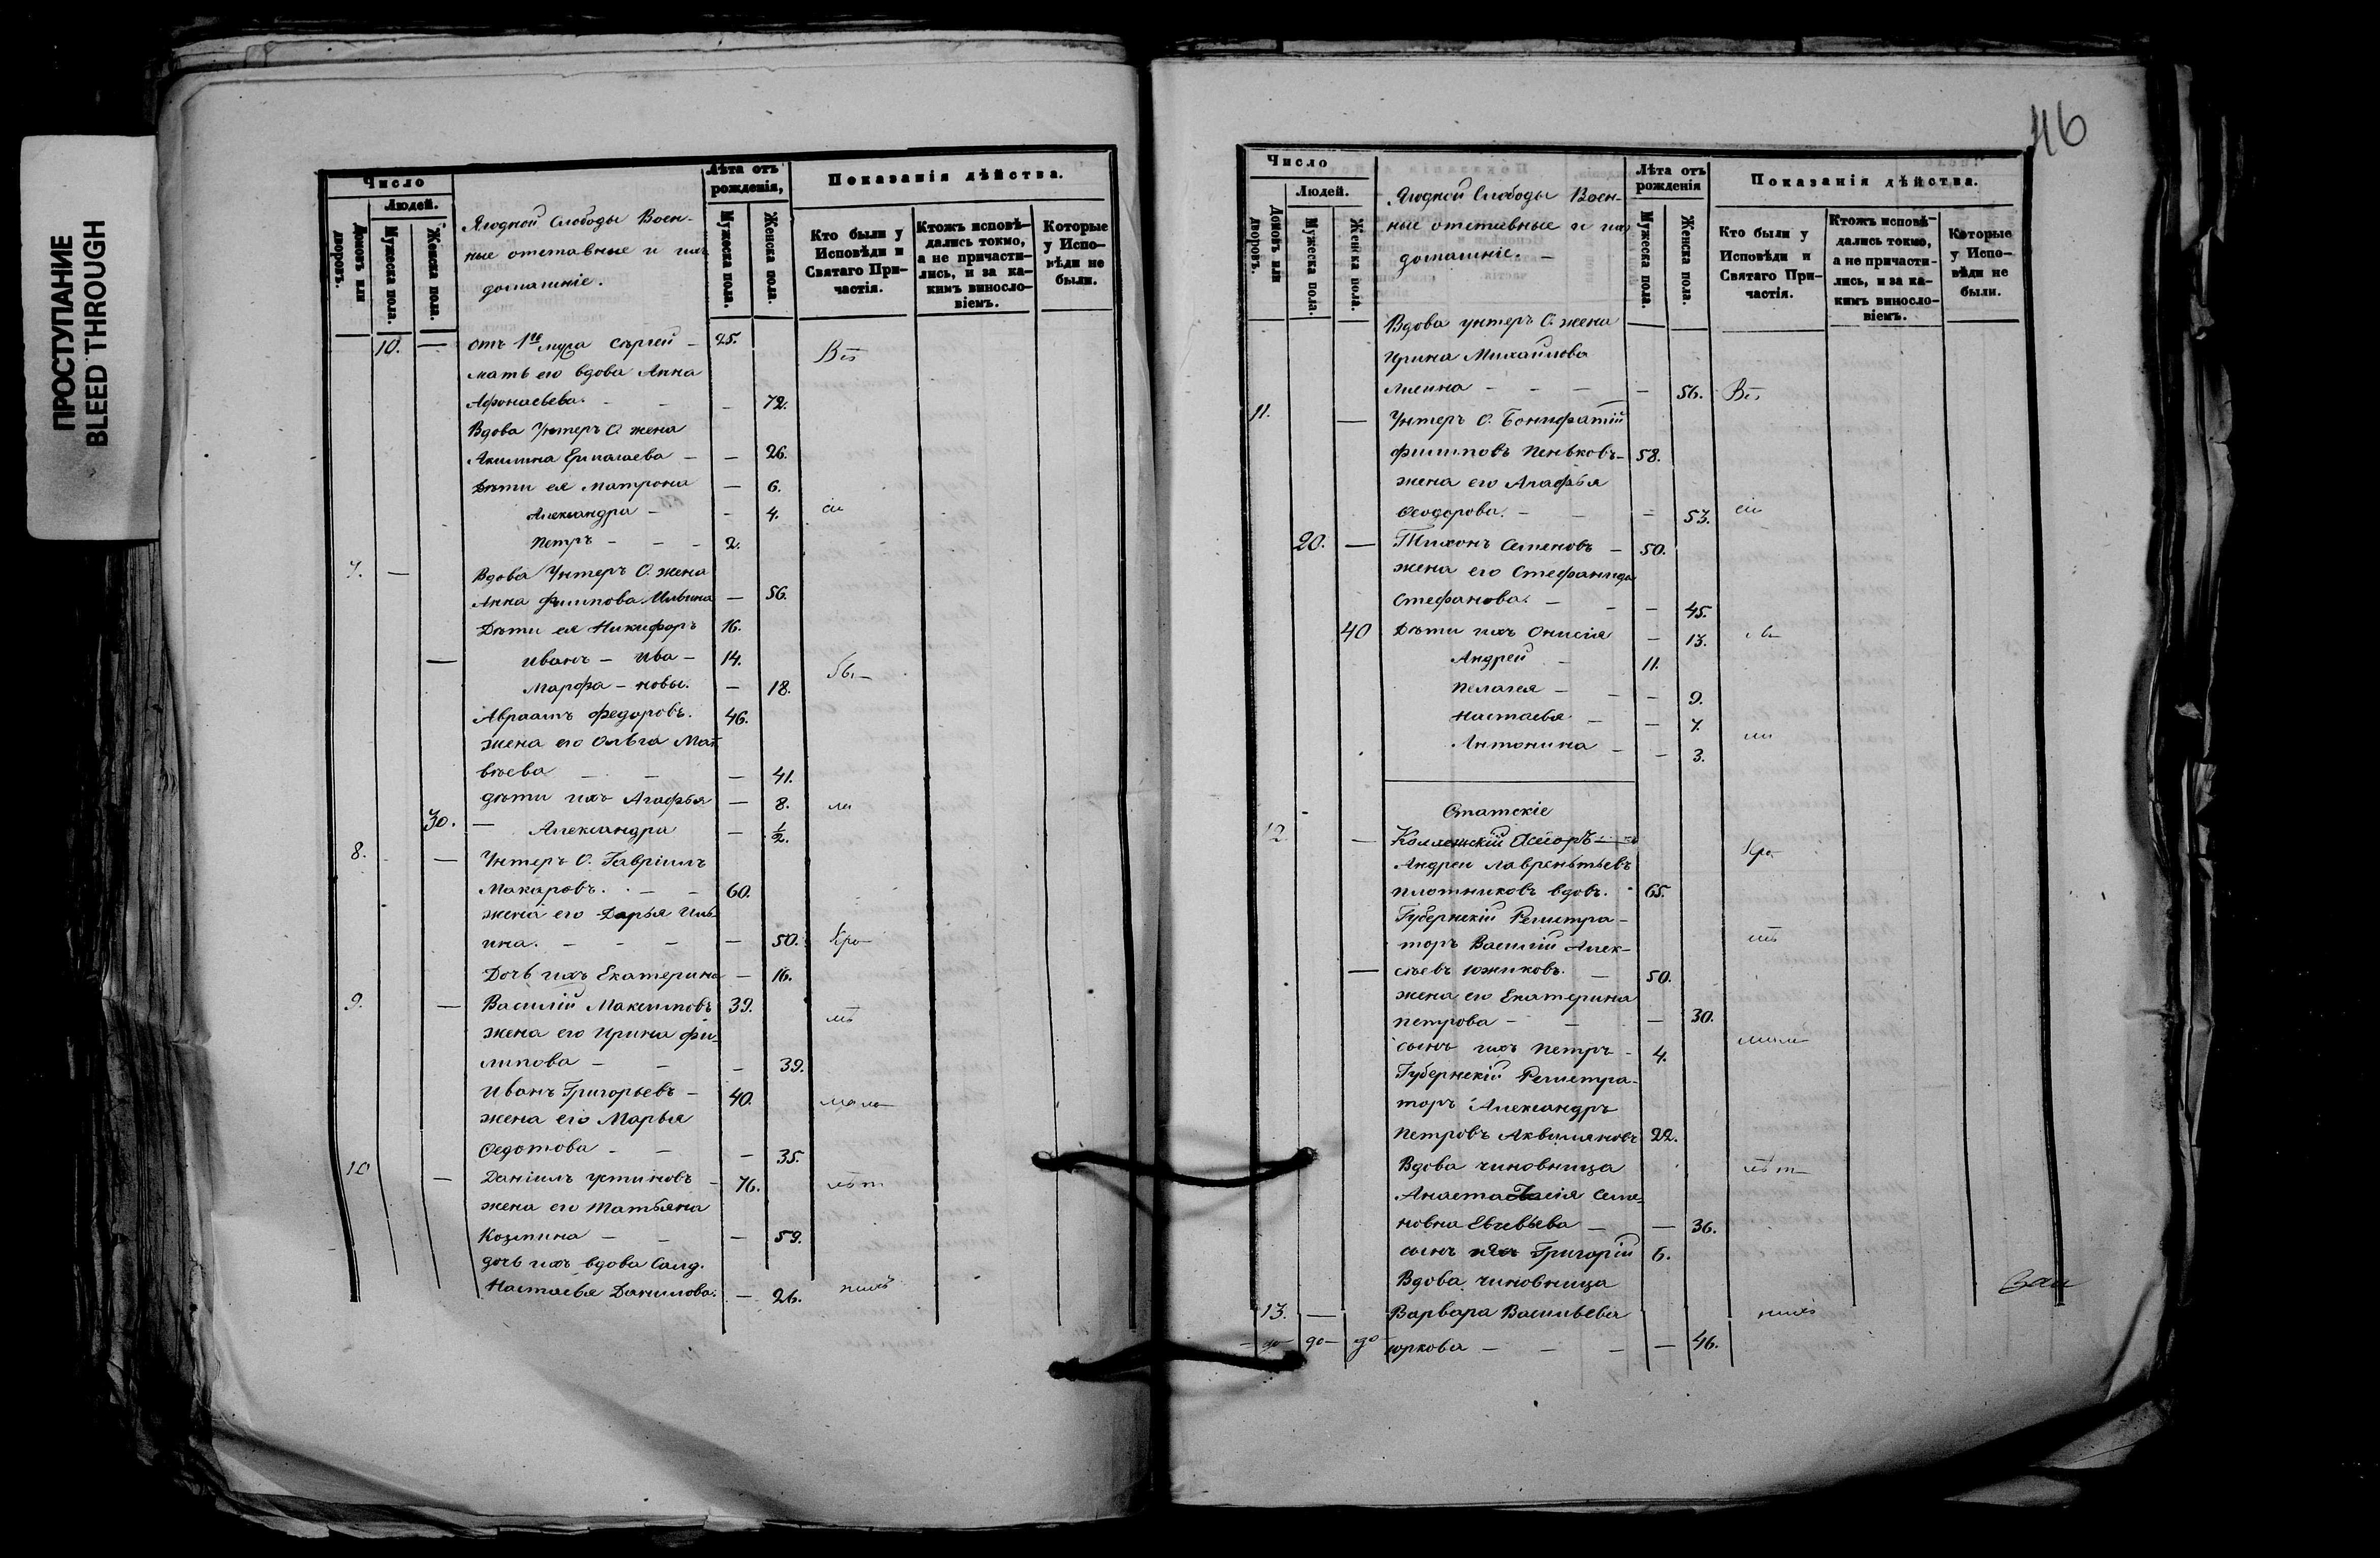 ПРОСТУПАНИЕ
BLEED THROUGH
Число
Людей.
Домовъ или дворовъ.
Мужеска пола.
Женска пола.
Ягодной Слободы Воен-
ные отставные и ихъ
домашніе.
Лѣта отъ рожденія,
Мужеска пола.
Женска пола.
Показанія дѣйства.
Кто были у Исповѣди и Святаго При-частія.
Ктожъ исповѣ-дались токмо, а не причасти-лись, и за ка-кимъ винословіемъ.
Которые у Испо-вѣди не были.
10. — отъ 1го мужа Сергей — 25.
мать его вдова Анна
Афонасьева. — — — 72.
Вдова Унтеръ О. жена
Акилина Ермолаева — — 26.
Дѣти ея Матрона — 6.
Александра — — 4.
Петръ — — — 2.
7. — Вдова Унтеръ О. жена
Анна Филипова Ильина — 56.
Дѣти ея Никифоръ 16.
— Иванъ — Ива — 14.
Марфа — новы. — 18.
Авраамъ Федоровъ. 46.
жена его Ольга Мат
вѣева — — — 41.
дѣти ихъ Агафья — 8.
30. — Александра — ½.
8. — Унтеръ О. Гавріилъ
Макаровъ. — — 60.
жена его Дарья Иль
ина. — — — — 50.
Дочь ихъ Екатерина — 16.
9. — Василій Максимовъ 39.
жена его Ирина Фи-
липова — — — 39.
Иванъ Григорьевъ — 40.
жена его Марья
Ѳедотова — — — 35.
10 — Даніилъ Устиновъ — 76.
жена его Татьяна
Козмина — — — 59.
дочь ихъ вдова Солд.
Настасья Данилова. — 26.
46
Число
Людей.
Домовъ или дворовъ.
Мужеска пола.
Женска пола.
Ягодной Слободы Воен-
ные отставные и ихъ
домашніе. —
Лѣта отъ рожденія
Мужеска пола.
Женска пола.
Показанія дѣйства.
Кто были у Исповѣди и Святаго При-частія.
Ктожъ исповѣ-дались токмо, а не причасти-лись, и за ка-кимъ винословіемъ.
Которые у Испо-вѣди не были.
Вдова унтеръ О. жена
Ирина Михайлова
— — — — 56.
11. — Унтеръ О. Бонифатій
Филиповъ Пеньковъ — 58.
жена его Агафья
Ѳеодорова. — — — 53.
20. — Тихонъ Семеновъ — 50.
жена его Стефанида
Стефанова. — — — 45.
40 Дѣти ихъ Онисія — 13.
Андрей — 11.
Пелагея — — — 9.
Настасья — — 7.
Антонина — — 3.
Статскіе
12. — Коллежскій Асессоръ
Андрей Лаврентьевъ
Плотниковъ вдовъ. 65.
Губернскій Регистра-
торъ Василій Алек-
— сѣевъ Южиковъ. — 50.
жена его Екатерина
Петрова — — — 30.
сынъ ихъ Петръ — 4.
Губернскій Регистра-
торъ Александръ
Петровъ Аквиляновъ 22.
Вдова чиновница
Семе-
новна — — 36.
сынъ Григорій 6.
Вдова чиновница
13. — Варвара Васильева
— до — до — до Юркова — — — — 46.